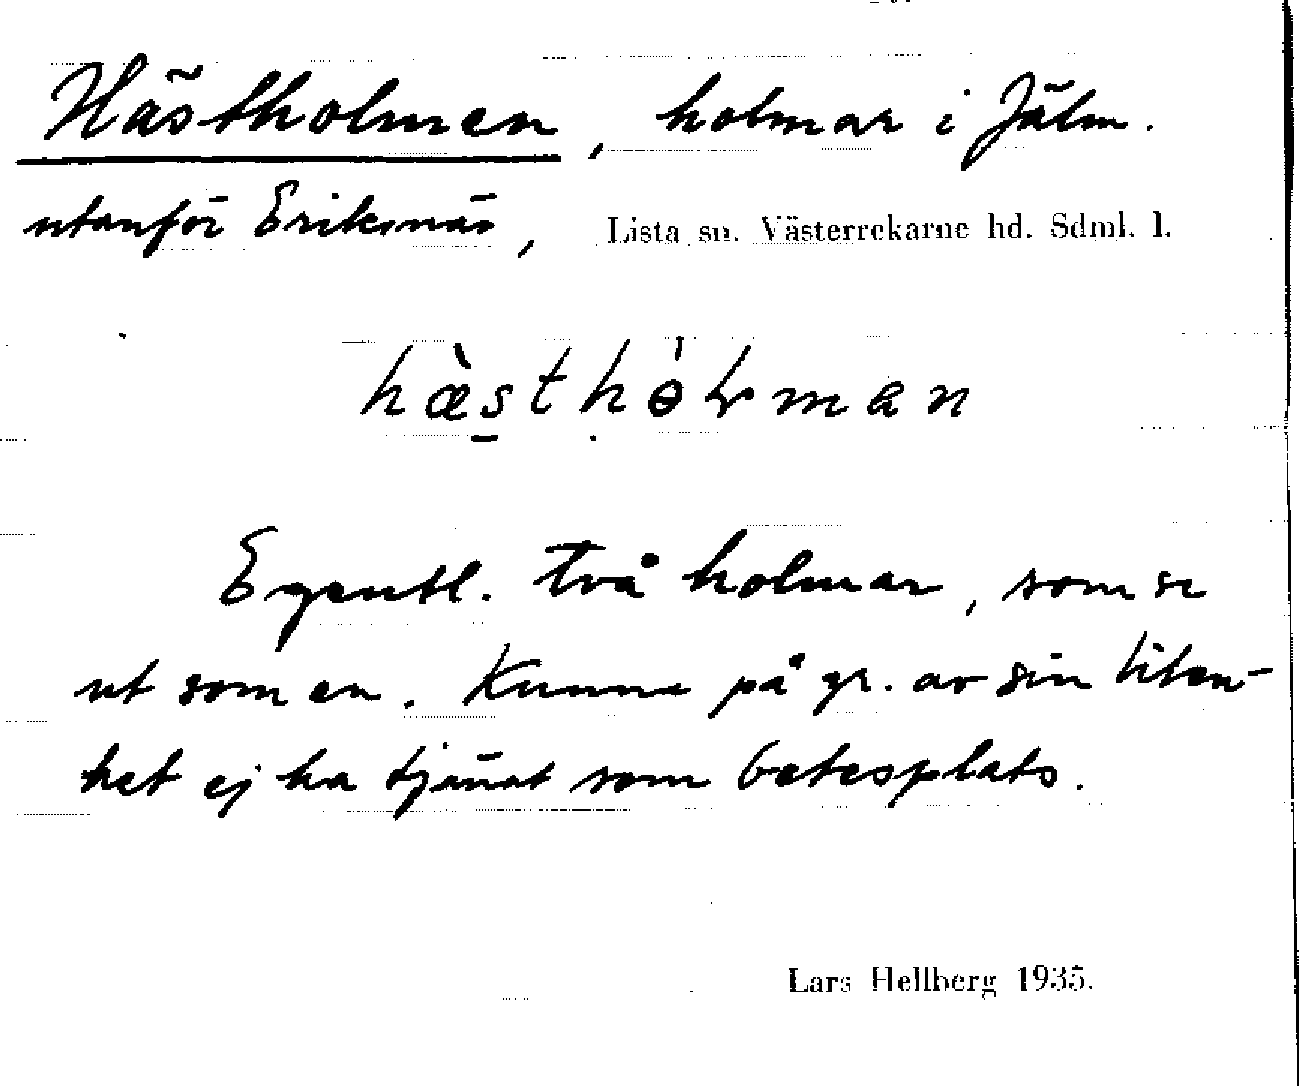 Hästholmen, holmar i Jälm.
utanför Eriksnäs, Lista sn. Västerrekarne hd. Sdml. l.
hæ̀sthɵ̀lman
Egentl. två holmar, som se
ut som en. Kunna på gr. av sin liten-
het ej ha tjänat som betesplats.
Lars Hellberg 1935.